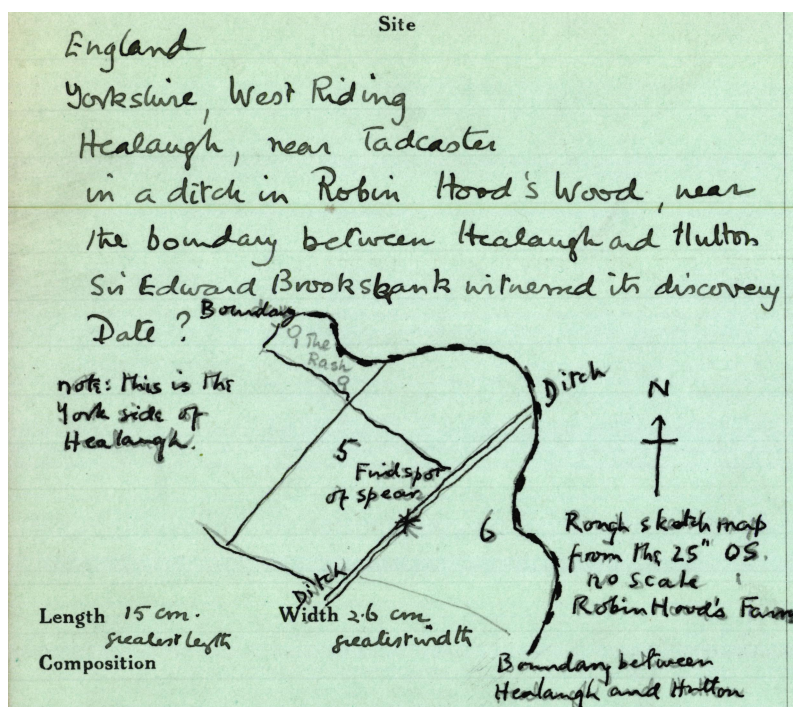 Site
England
Yorkshire, West Riding
Healaugh, near Tadcaster
in a ditch in Robin Hood's Wood, near
the boundary between Healaugh and Hutton
Sir Edward Brooksbank witnessed its discovery
Date ?
Boundary
The
Rash
note: this is the
York side of
Healaugh.
Ditch
N
5
Findspot
of spear
6
Rough sketch map
from the 25" OS.
no scale
Robin Hood's Farm
Ditch
Length 15 cm.
greatest length
Width 2.6 cm
greatest width
Composition
Boundary between
Healaugh and Hutton